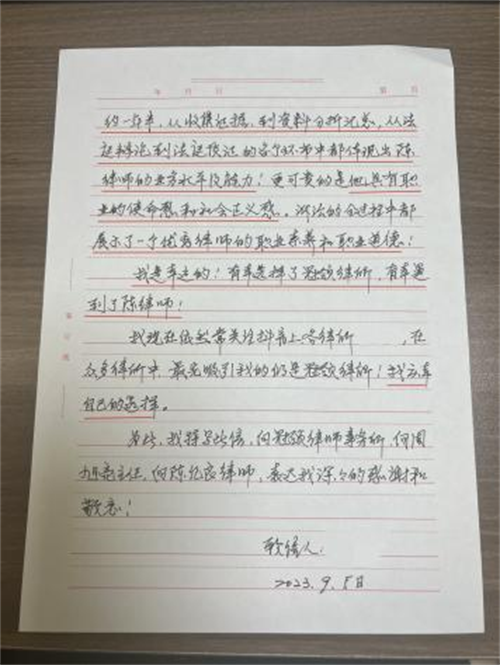 年 月 日 第 页
约一年半，从收集证据，到资料分析汇总，从法
证辩论到法证质证的各个环节中都体现出陈
律师的业务水平及能力！更可贵的是他具有职
业的使命感和社会正义感。涉法的全过程中都
展示了一个优秀律师的职业素养和职业道德！
我是幸运的！有幸选择了冠领律所，有幸遇
到了陈律师！
我现在依然常关注抖音上各律所 ，在
众多律所中，最先吸引我的仍是冠领律所！我庆幸
自己的选择。
为此，我择写此信，向冠领律师事务所，向周
旭亮主任，向陈 律师，表达我深々的感谢和
敬意！
致信人：
2023.9.5日